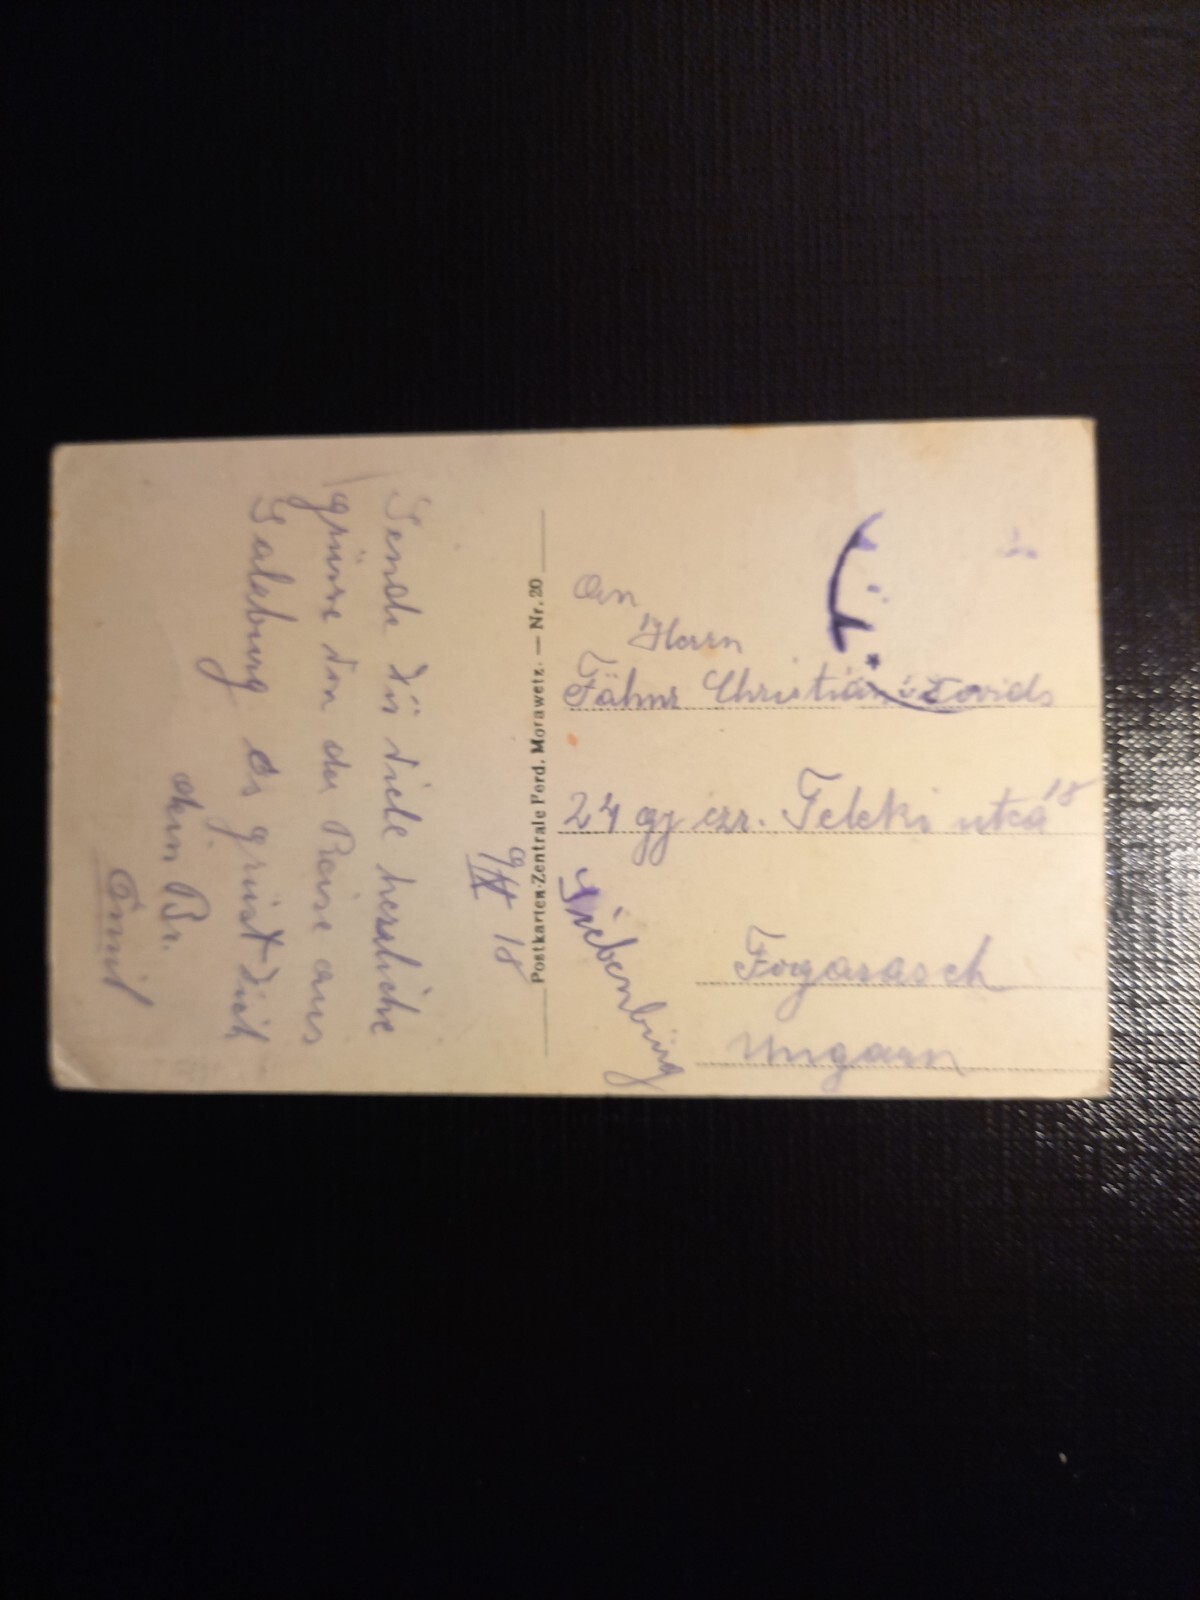 9/IX 18
Sende dir viele herzliche
grüsse von der Reise aus
Salzburg. es grüsst dich
dein Br.
Emil
Postkarten-Zentrale Ferd. Morawetz. — Nr. 20
An
Herrn
Fähnr Christian
24 gy ezr. Teleki utca 18
Fogarasch
Ungarn
Siebenbürg